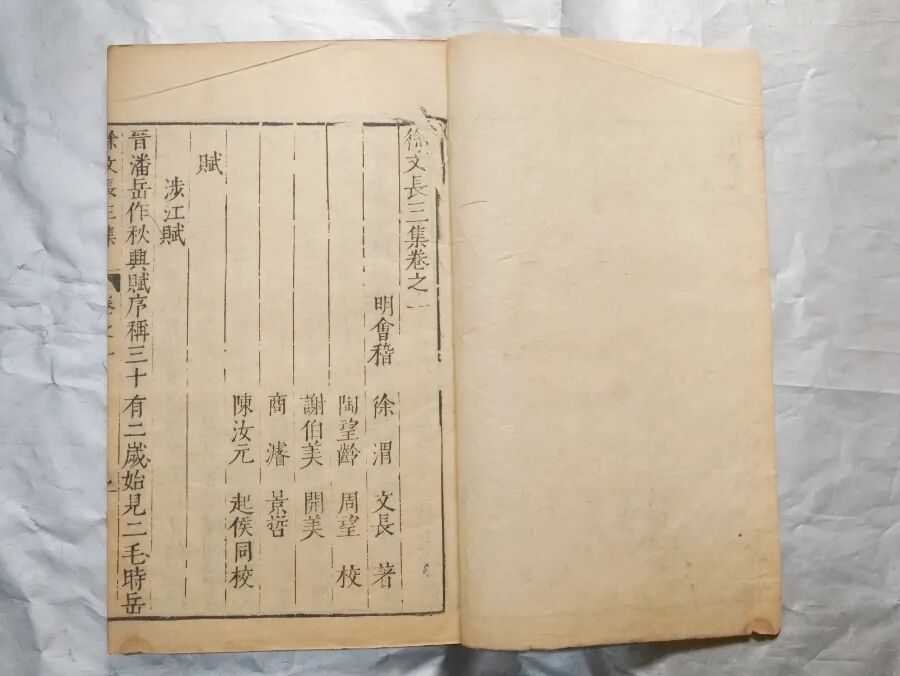 徐文長三集卷之一
明會稽 徐渭 文長 著
陶望齡 周望 校
謝伯美 開美
商濬 景哲
陳汝元 起侯同校
賦
涉江賦
晉潘岳作秋興賦序稱三十有二歲始見二毛時岳
徐文長三集 卷之一